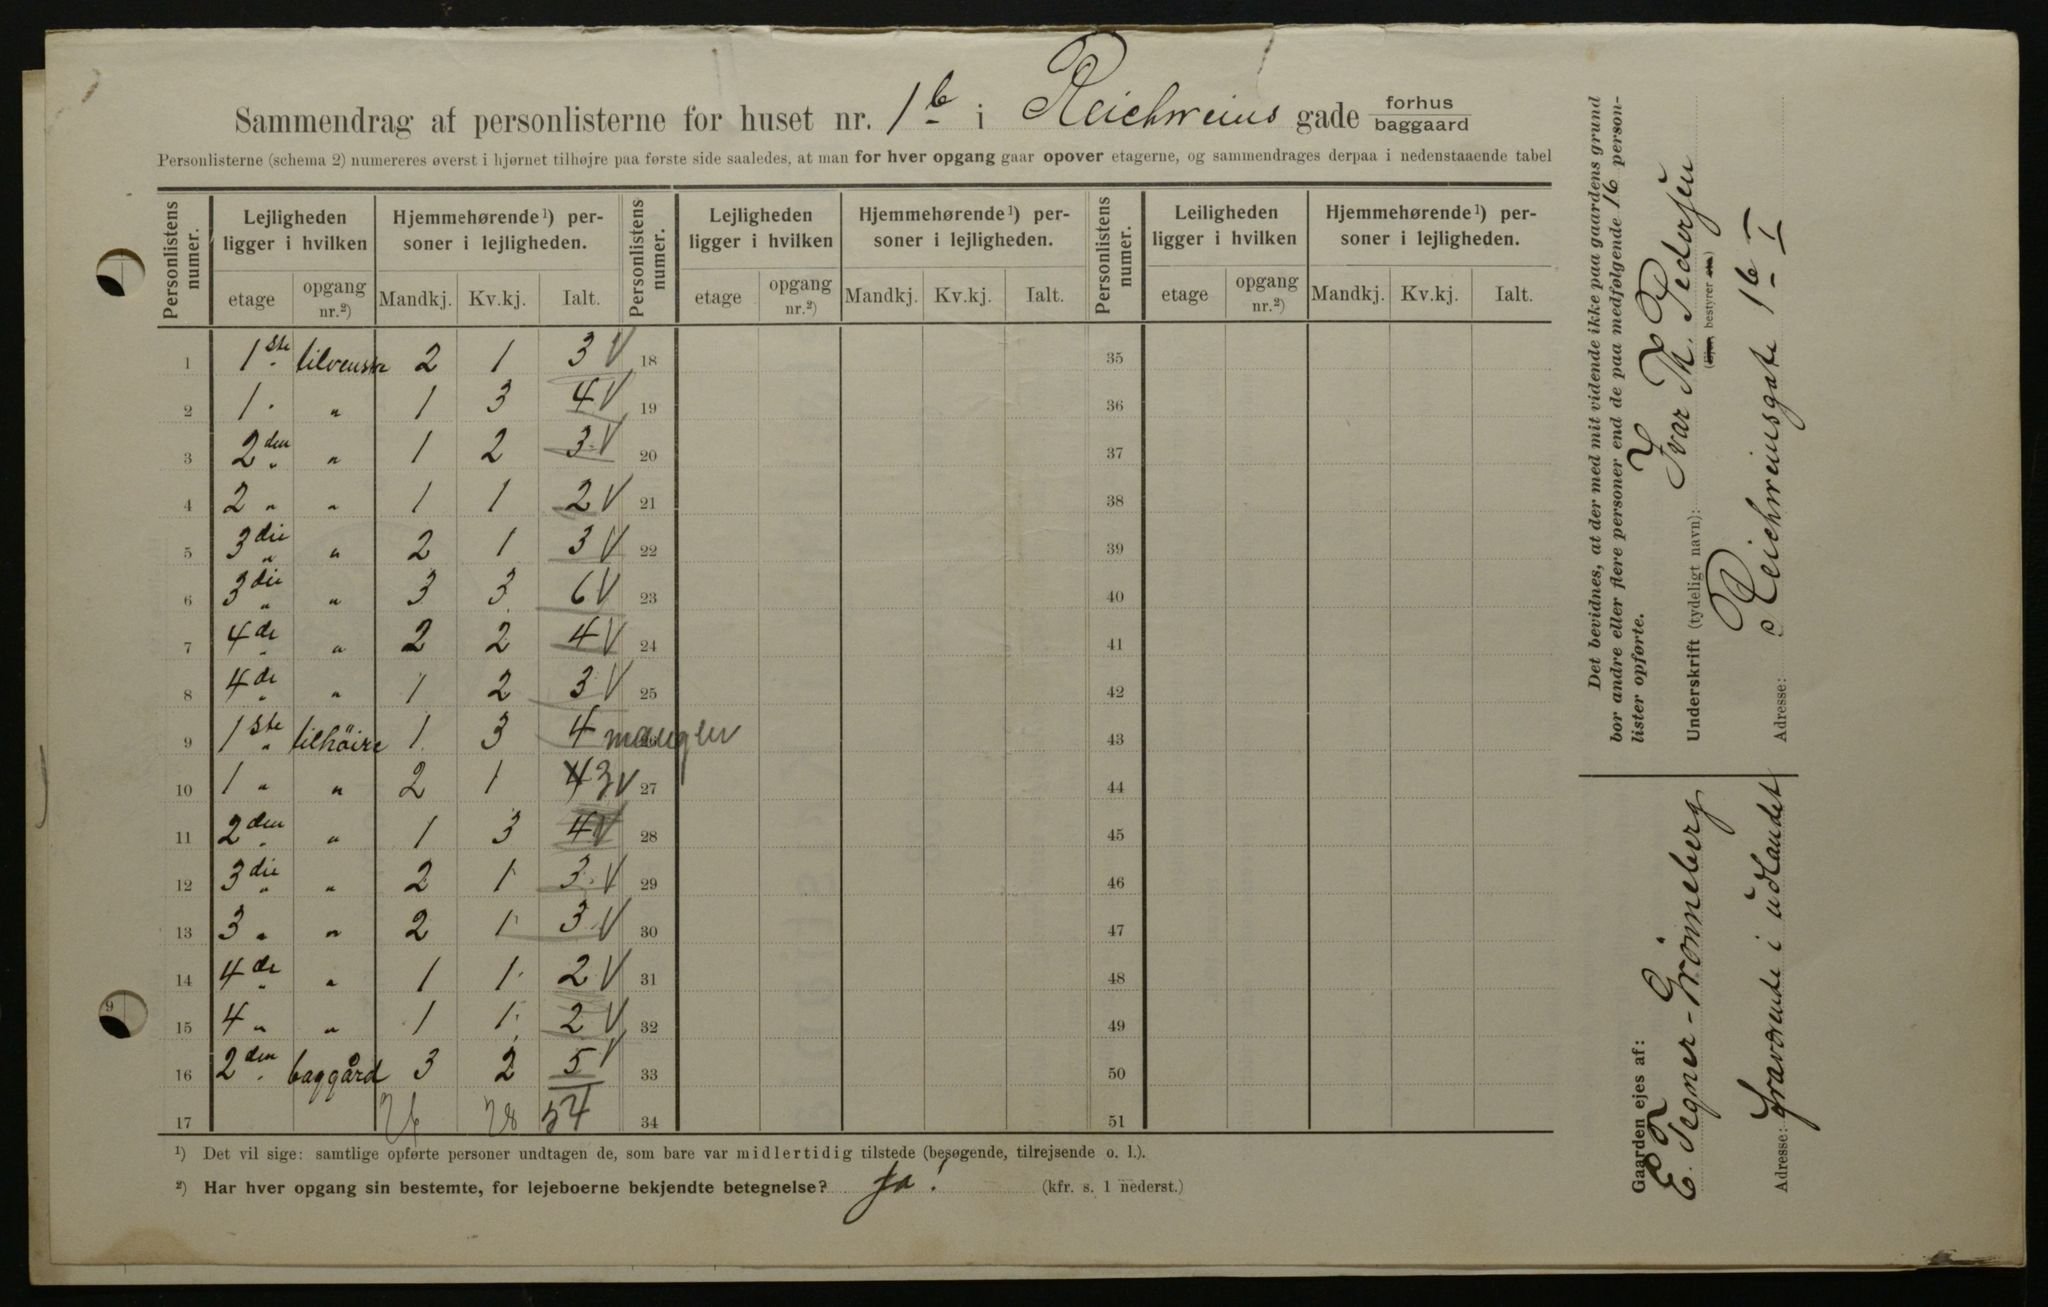 Sammendrag af personlisterne for huset nr. 1b i Reichweins gade forhus baggaard
Personlisterne (schema 2) numereres øverst i hjørnet tilhøjre paa første side saaledes, at man for hver opgang gaar opover etagerne, og sammendrages derpaa i nedenstaaende tabel
Personlistens numer. Lejligheden ligger i hvilken Hjemmehørende¹) personer i lejligheden. Personlistens numer. Lejligheden ligger i hvilken Hjemmehørende¹) personer i lejligheden. Personlistens numer. Leiligheden ligger i hvilken Hjemmehørende¹) personer i lejligheden.
etage opgang nr.²) Mandkj. Kv.kj. Ialt. etage opgang nr.²) Mandkj. Kv.kj. Ialt. etage opgang nr.²) Mandkj. Kv.kj. Ialt.
1 1ste tilvenstre 2 1 3 V 18 35
2 1 " " 1 3 4 V 19 36
3 2den " " 1 2 3 V 20 37
4 2 " " 1 1 2 V 21 38
5 3die " " 2 1 3 V 22 39
6 3die " " 3 3 6 V 23 40
7 4de " " 2 2 4 V 24 41
8 4de " " 1 2 3 V 25 42
9 1ste " tilhöire 1 3 4 mangler 26 43
10 1 " " 2 1 4 3 V 27 44
11 2den " " 1 3 4 V 28 45
12 3die " " 2 1 3 V 29 46
13 3 " " 2 1 3 V 30 47
14 4de " " 1 1 2 V 31 48
15 4 " " 1 1 2 V 32 49
16 2den baggård 3 2 5 V 33 50
17 26 28 54 34 51
¹) Det vil sige: samtlige opførte personer undtagen de, som bare var midlertidig tilstede (besøgende, tilrejsende o. l.).
²) Har hver opgang sin bestemte, for lejeboerne bekjendte betegnelse? Ja! (kfr. s. 1 nederst.)
Det bevidnes, at der med mit vidende ikke paa gaardens grund
bor andre eller flere personer end de paa medfølgende 16 person-
lister opførte.
Underskrift (tydeligt navn): Ivar Th. Pedersen
(Ejer, bestyrer etc.)
Adresse: Reichweinsgate 1b I
Gaarden ejes af:
E. Tegner-Grönneberg
Adresse: fraværende i udlandet
9